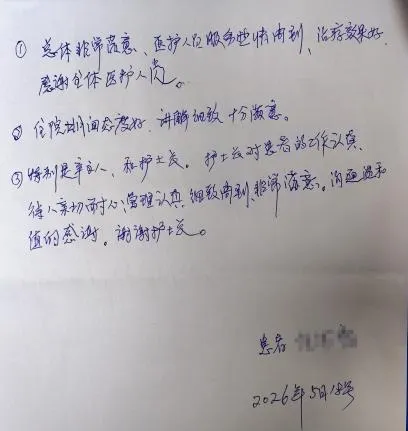 ① 总体非常满意、医护人员服务热情周到、治疗效果好.
感谢全体医护人员。
② 住院期间态度好 讲解细致 十分满意。
③ 特别是辛主人、和护士长。护士长对患者的工作认真、
待人亲切耐心,管理认真 细致周到、非常满意。沟通温和
值的感谢。谢谢护士长。
患者
2026年5月18号